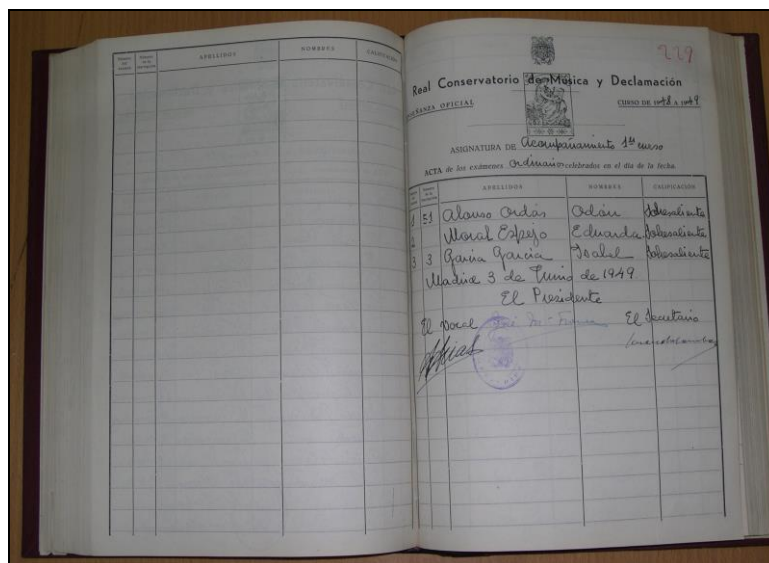 APELLIDOS NOMBRES CALIFICACIÓN
229
Real Conservatorio de Música y Declamación
ENSEÑANZA OFICIAL CURSO DE 1948 A 1949
ASIGNATURA DE Acompañamiento 1er curso
ACTA de los exámenes Ordinarios celebrados en el día de la fecha.
APELLIDOS NOMBRES CALIFICACIÓN
1 51 Alonso Ordás Odón Sobresaliente
2 Moral Espejo Eduarda Sobresaliente
3 3 García García Isabel Sobresaliente
Madrid 3 de Junio de 1949
El Presidente
El Vocal El Secretario